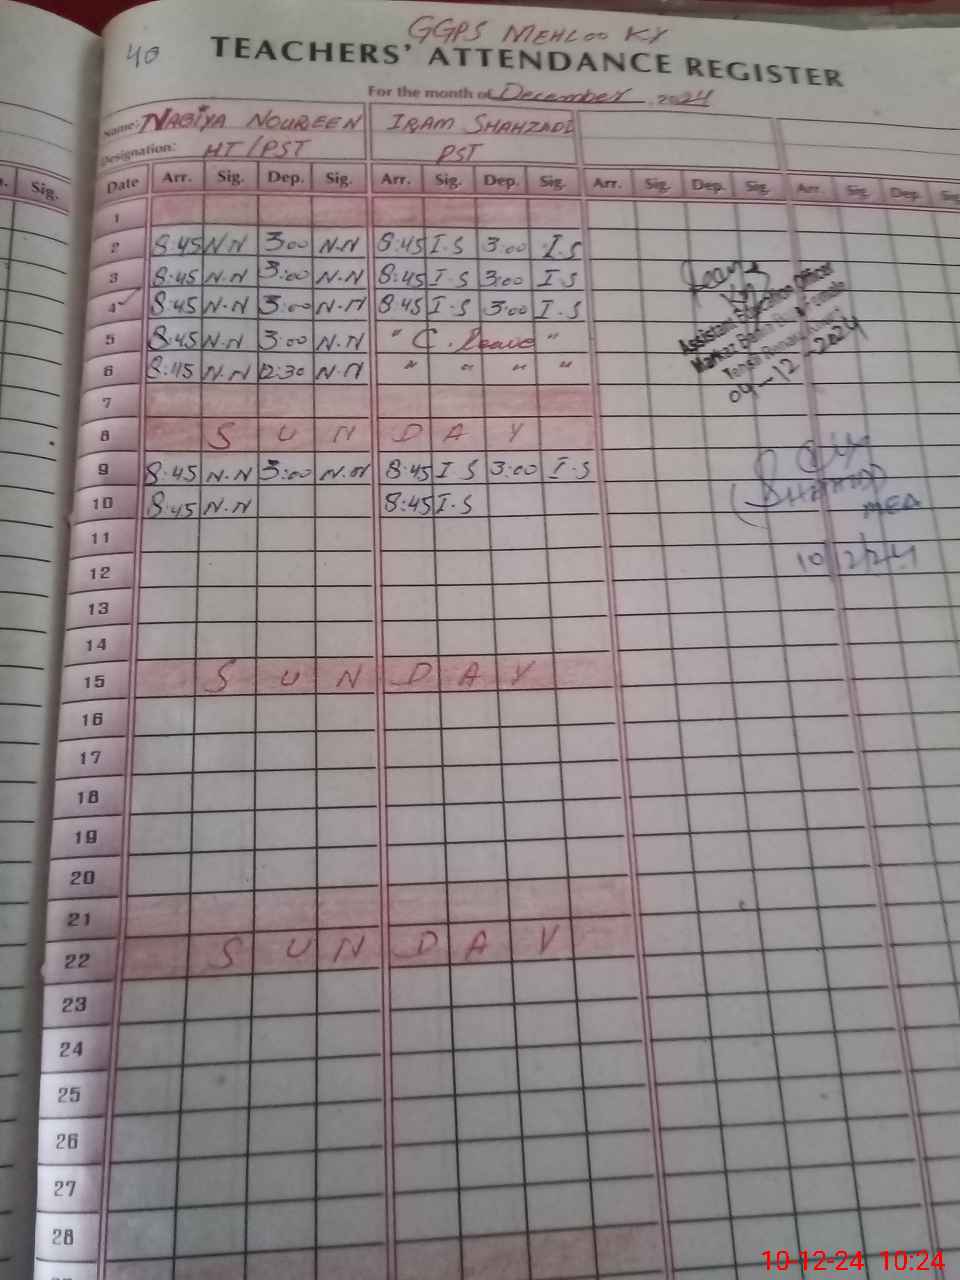 GGPS MEHLOO KY
40
TEACHERS' ATTENDANCE REGISTER
For the month of December, 2024
Name: NABIYA NOUREEN IRAM SHAHZADI
Designation: HT/PST PST
Sig.
Date Arr. Sig. Dep. Sig. Arr. Sig. Dep. Sig. Arr. Sig. Dep. Sig. Arr. Sig. Dep. Sig.
1
2 8:45 N.N 3:00 N.N 8:45 I.S 3:00 I.S
3 8:45 N.N 3:00 N.N 8:45 I.S 3:00 I.S
4 8:45 N.N 3:00 N.N 8:45 I.S 3:00 I.S
5 8:45 N.N 3:00 N.N " C. Leave "
6 8:45 N.N 12:30 N.N " " " "
7
8 S U N D A Y
9 8:45 N.N 3:00 N.N 8:45 I.S 3:00 I.S
10 8:45 N.N 8:45 I.S
11
12
13
14
15 S U N D A Y
16
17
18
19
20
21
22 S U N D A Y
23
24
25
26
27
28
Assistant Education Officer
Markaz
04-12-2024
MEA
10/12/24
10-12-24 10:24